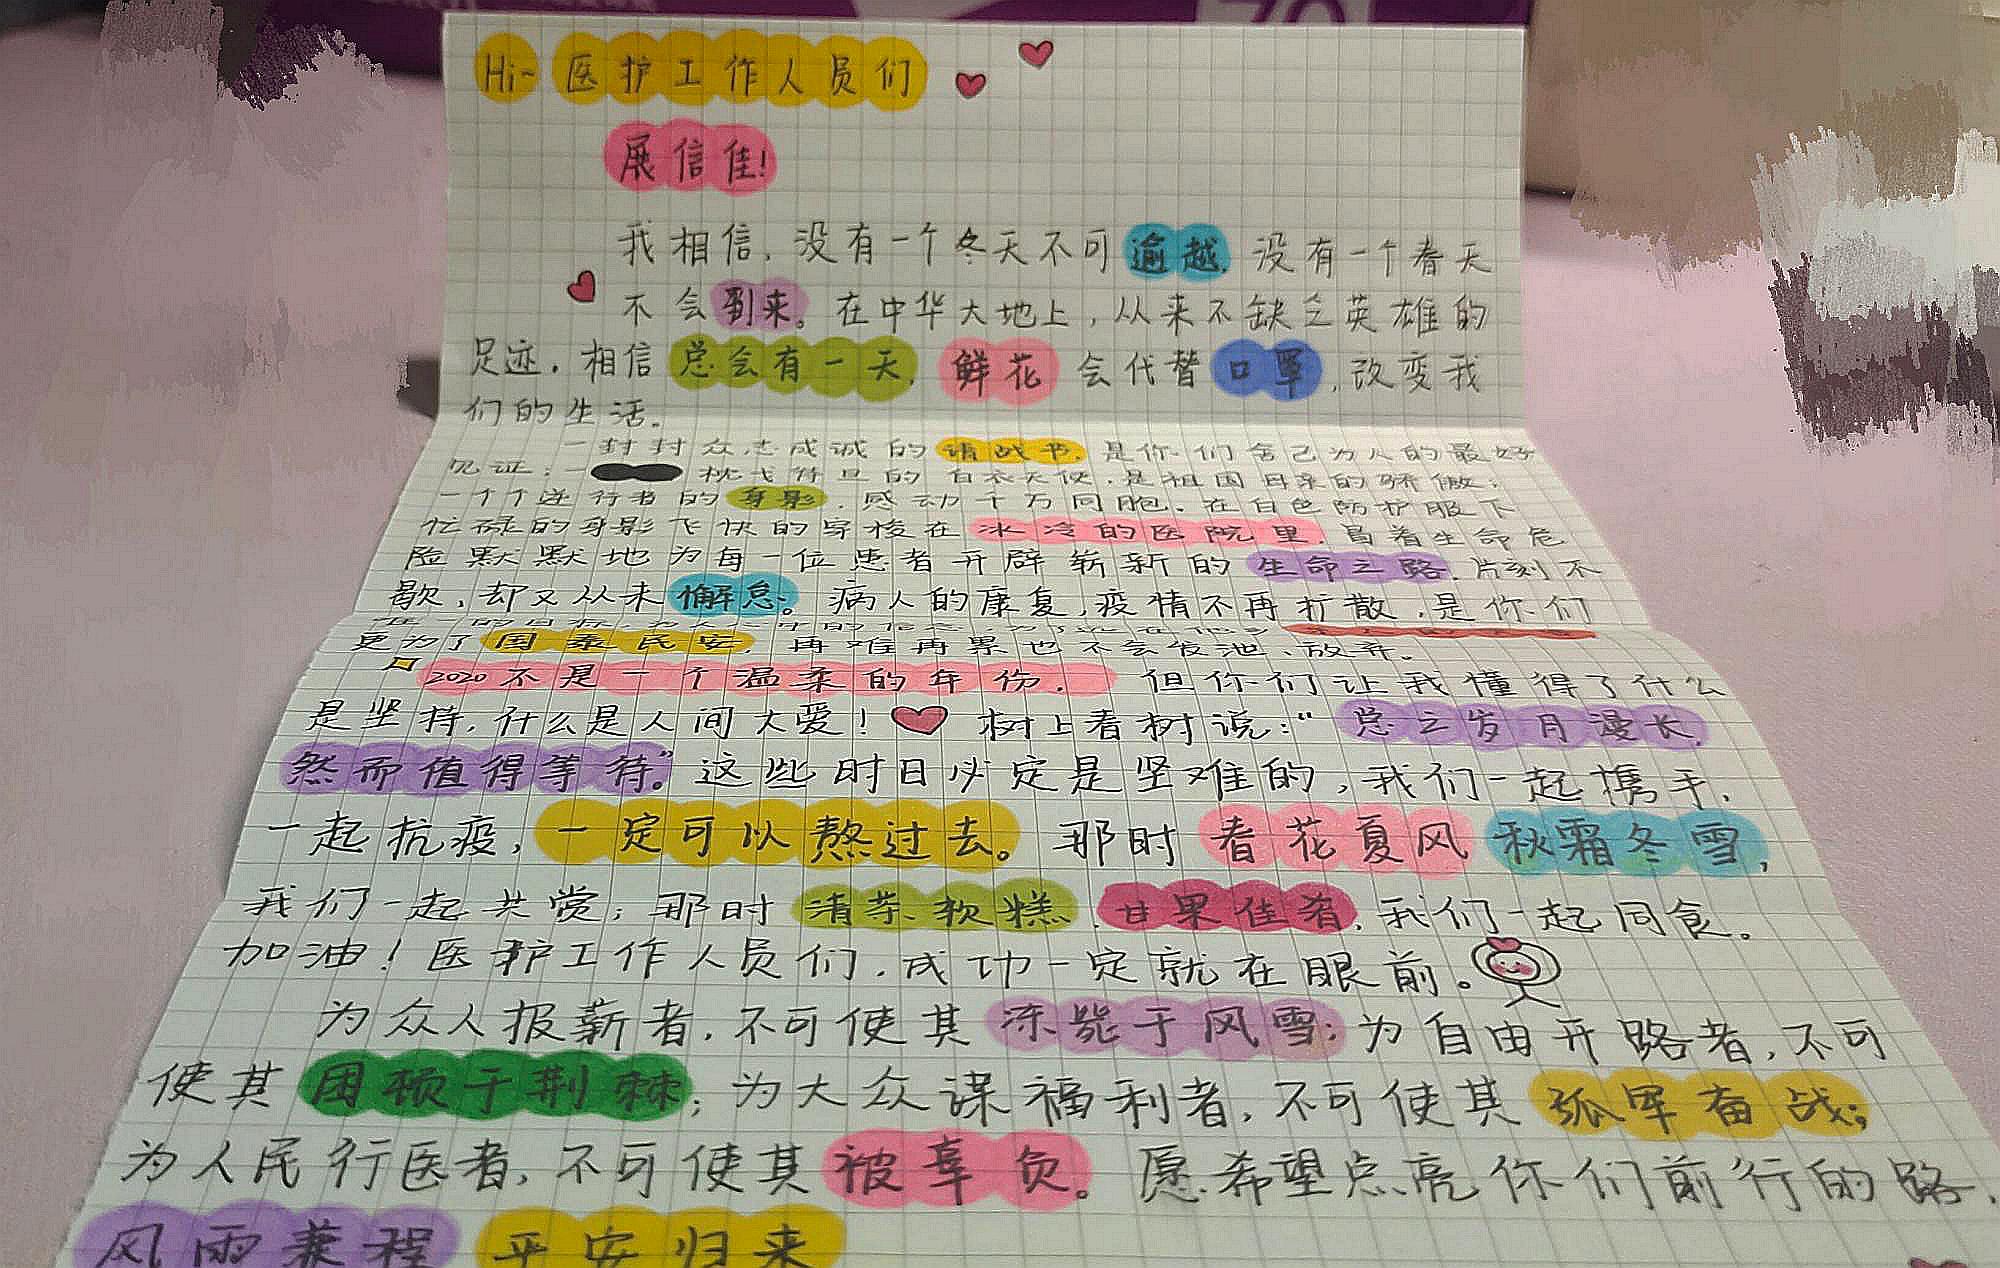 Hi~医护工作人员们
展信佳!
我相信,没有一个冬天不可逾越,没有一个春天
不会到来。在中华大地上,从来不缺乏英雄的
足迹.相信总会有一天,鲜花会代替口罩,改变我
们的生活.
一封封众志成诚的请战书,是你们舍己为人的最好
见证;一 枕戈待旦的白衣天使,是祖国母亲的骄傲;
一个个逆行者的身影,感动千万同胞.在白色防护服下
忙碌的身影飞快的穿梭在冰冷的医院里,冒着生命危
险默默地为每一位患者开辟崭新的生命之路,片刻不
歇,却又从未懈怠。病人的康复,疫情不再扩散,是你们
更为了国泰民安,再难再累也不会发池、放弃。
2020不是一个温柔的年份.但你们让我懂得了什么
是坚持,什么是人间大爱!树上春树说:“总之岁月漫长,
然而值得等待。”这些时日必定是坚难的,我们一起携手,
一起抗疫,一定可以熬过去。那时春花夏风秋霜冬雪,
我们一起共赏;那时清茶、软糕,甘果佳肴,我们一起同食。
加油!医护工作人员们,成功一定就在眼前。
为众人报薪者,不可使其冻毙于风雪;为自由开路者,不可
使其困顿于荆棘;为大众谋福利者,不可使其孤军奋战;
为人民行医者,不可使其被辜负。愿希望点亮你们前行的路,
风雨兼程 平安归来